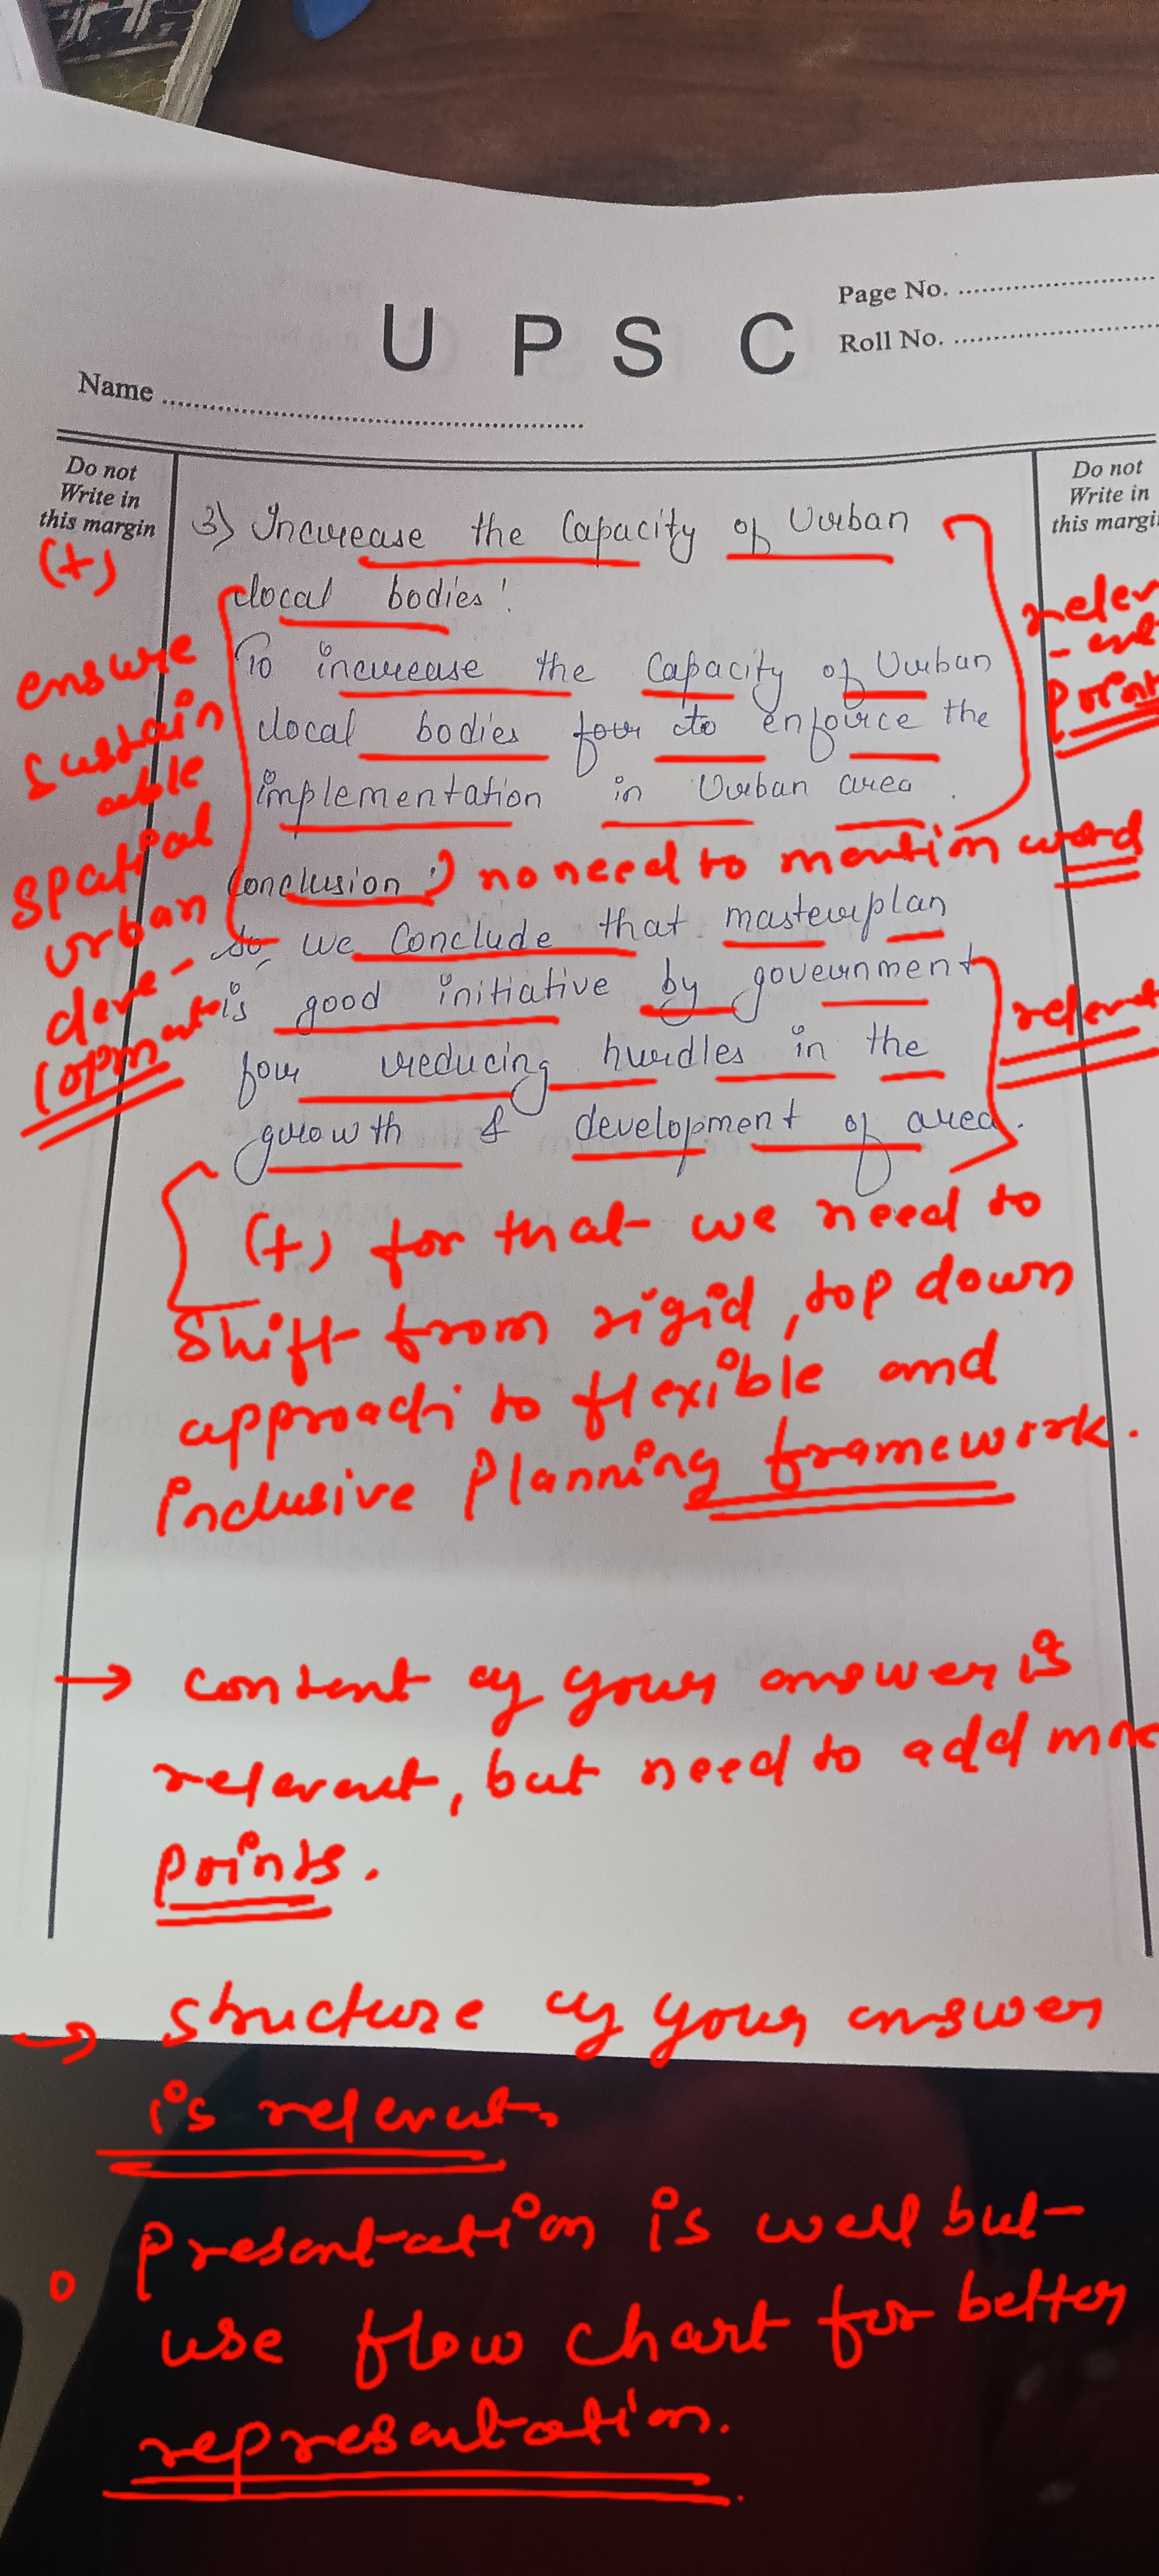 Page No.
U P S C
Roll No.
Name
Do not
Write in
this margin
Do not
Write in
this margi
3) Increase the Capacity of Urban
local bodies :
To increase the Capacity of Urban
local bodies for to enforce the
implementation in Urban area.
(+)
ensure
sustain
able
spatial
urban
deve-
lopment
relev
-ent
point
Conclusion :) no need to mention word
so, we Conclude that masterplan
is good initiative by government
for reducing hurdles in the
growth & development of area.
relevant
(+) for that we need to
shift from rigid, top down
approach to flexible and
inclusive planning framework.
→ content of your answer is
relevant, but need to add more
points.
→ structure of your answer
is relevant.
o presentation is well but
use flow chart for better
representation.